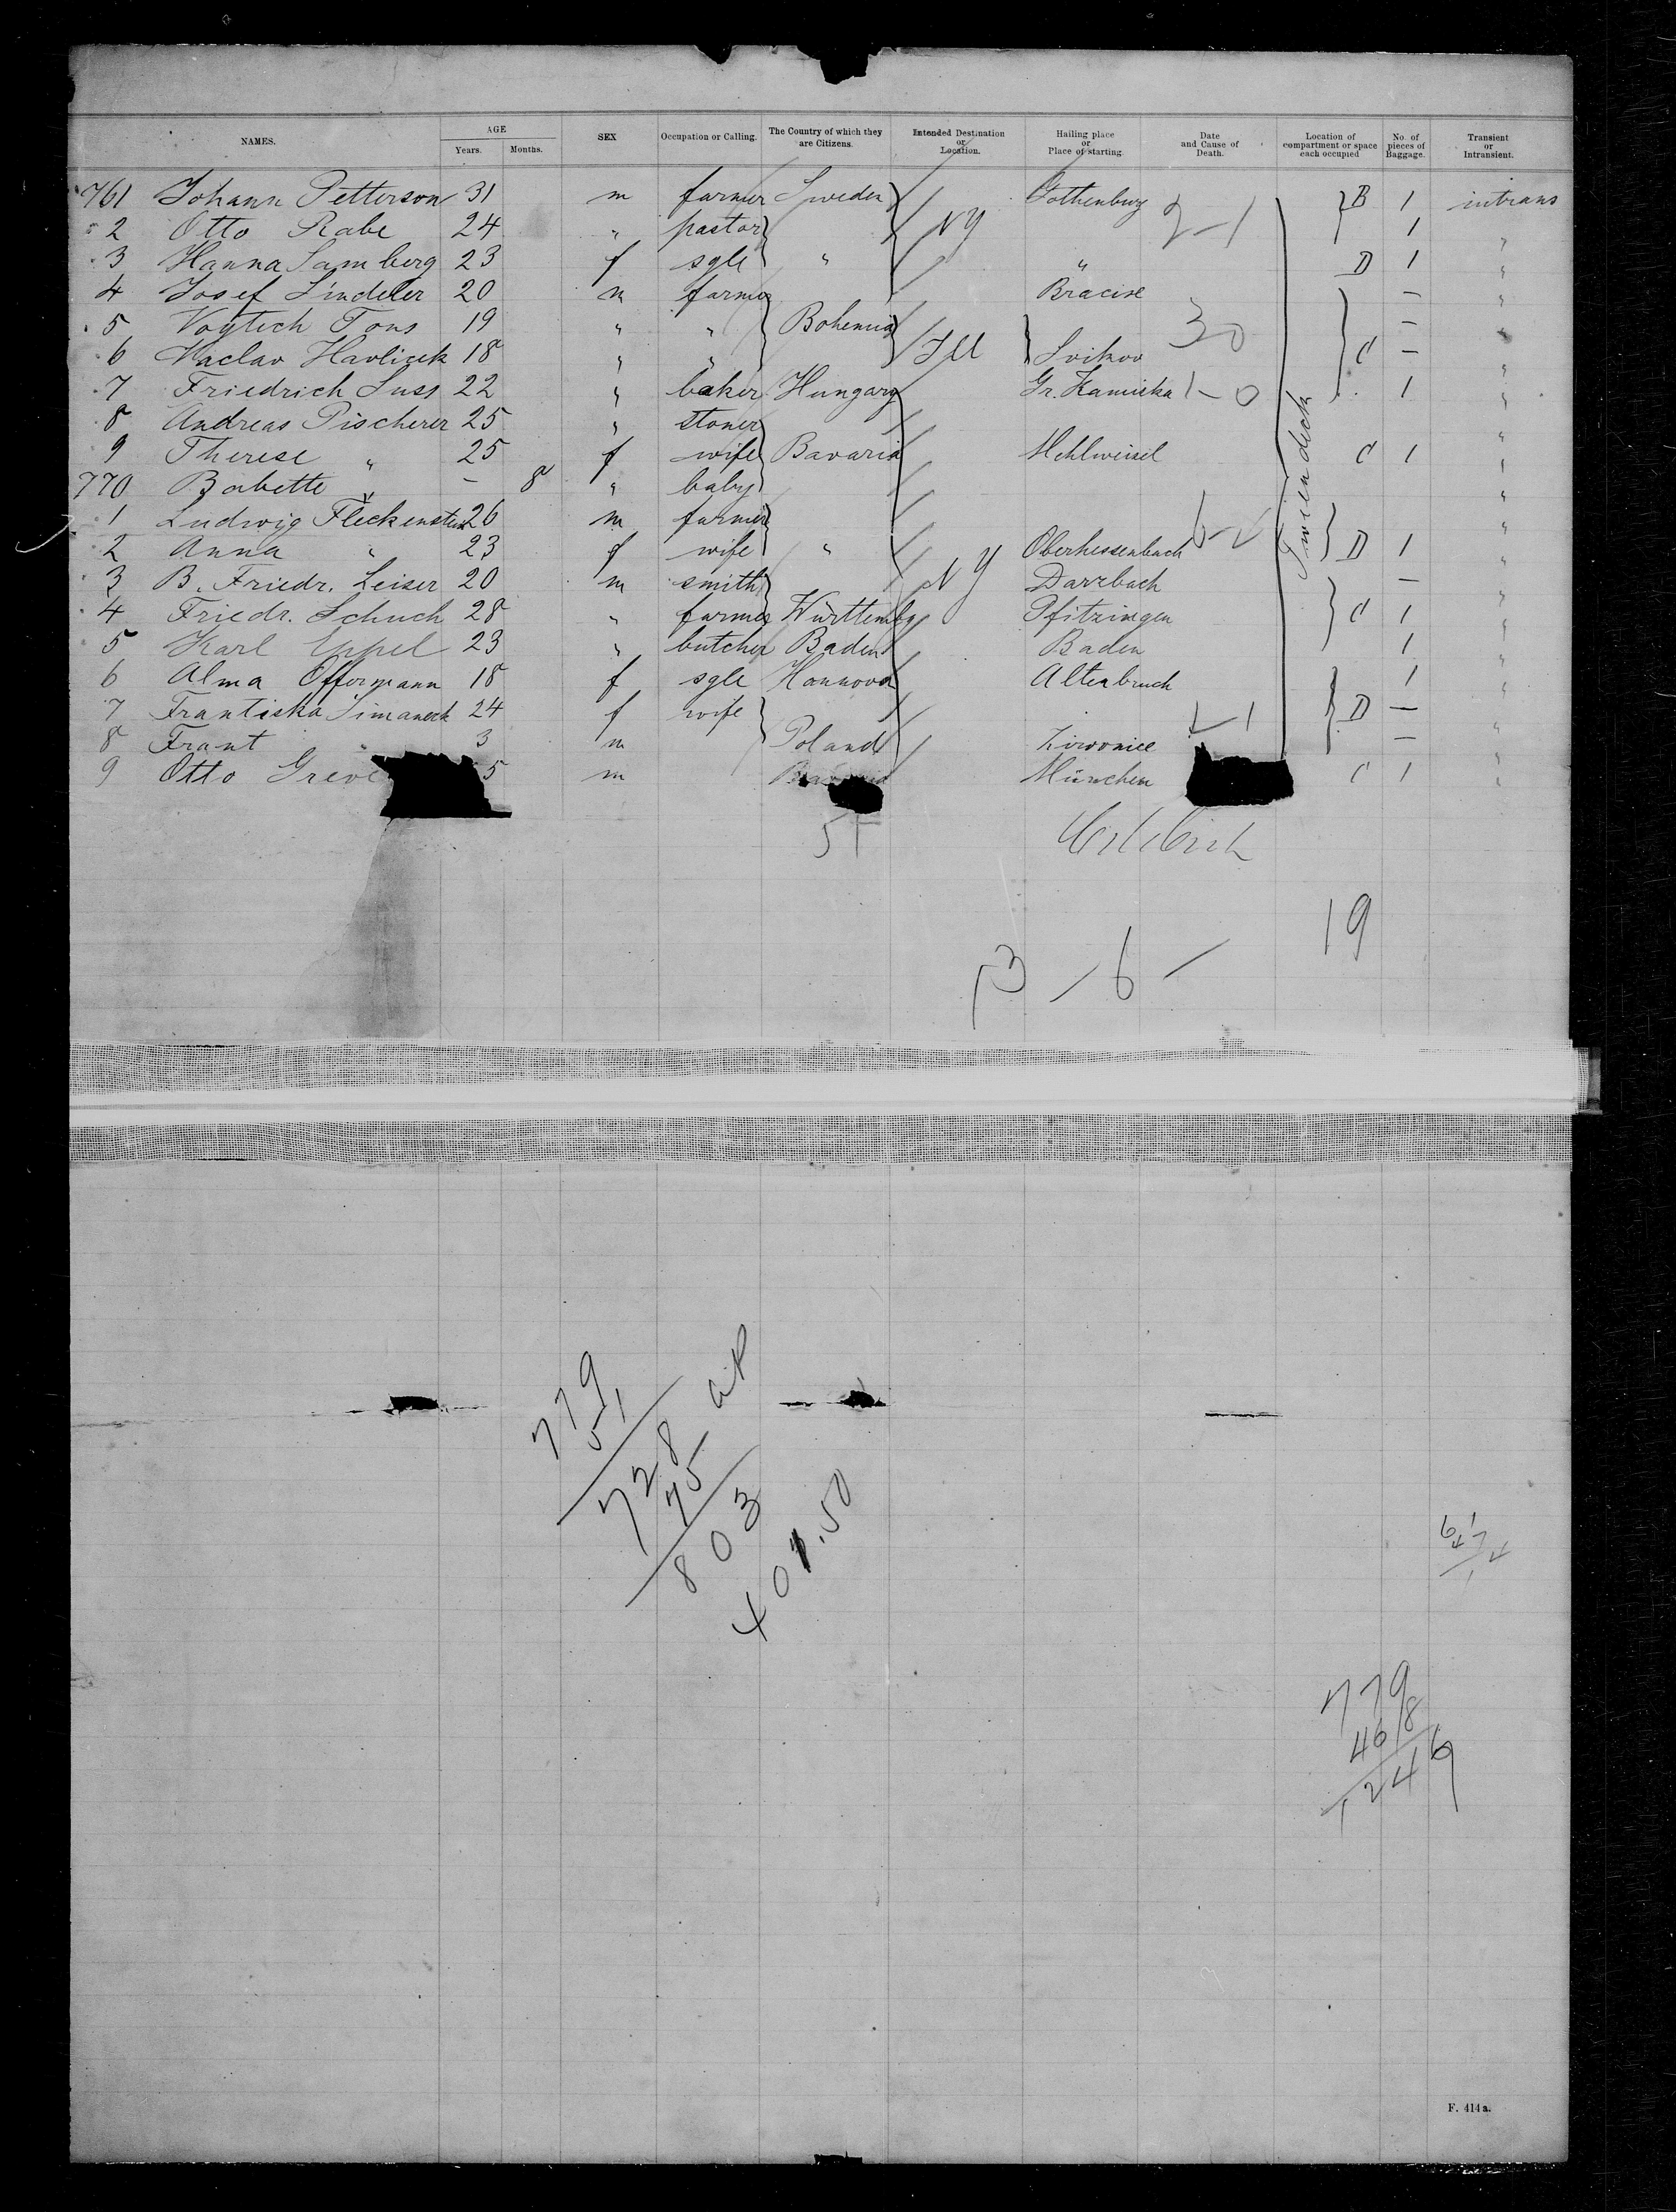 NAMES. AGE Years. Months. SEX Occupation or Calling. The Country of which they are Citizens. Intended Destination or Location. Hailing place or Place of starting. Date and Cause of Death. Location of compartment or space each occupied No. of pieces of Baggage. Transient or Intransient.
761 Johann Petterson 31 m farmer Sweden Gothenburg B 1 intrans
2 Otto Rabe 24 " pastor NY 2-1 1 "
3 Hanna Samberg 23 f sgle " " D 1 "
4 Josef Lindeler 20 m farmer Bracise — "
5 Voytech Tons 19 " " Bohemia 30 — "
6 Waclav Havlicek 18 " " Ill Svikov C — "
7 Friedrich Suss 22 " baker Hungary Gr. Kamiska 1-0 1 "
8 Andreas Pischerer 25 " stoner "
9 Therese " 25 f wife Bavaria Mehlweisel C 1 "
770 Babette " — 8 " baby "
1 Ludwig Fleckenstein 26 m farmer "
2 Anna " 23 f wife " Oberhessenbach D 1 "
3 B. Friedr. Leiser 20 m smith NY Darrbach — "
4 Friedr. Schuch 28 " farmer Württembg Pfitzingen C 1 "
5 Karl Eppel 23 " butcher Baden Baden 1 "
6 Alma Offermann 18 f sgle Hannover Altenbruch 1 "
7 Frantiska Simaneck 24 f wife D — "
8 Frant " 3 m Poland Zirovnice — "
9 Otto Greve 5 m München C 1 "
Tweendeck
19
13 - 6 -
779
51
728
75
803
401.50
779
468
1246
F. 414a.